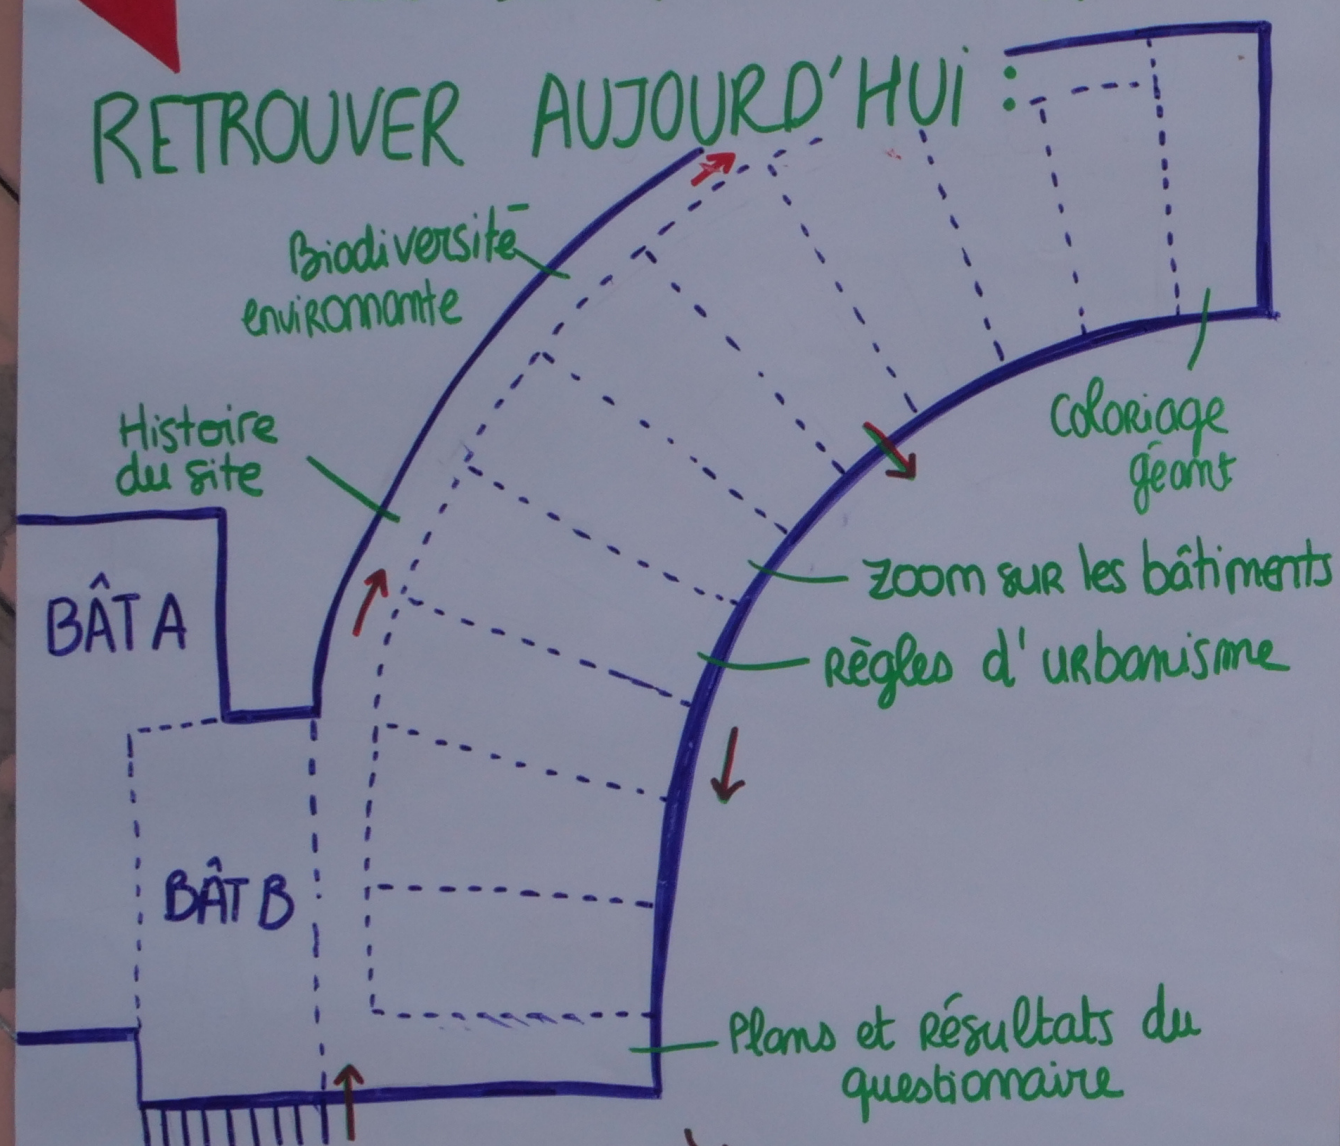 RETROUVER AUJOURD'HUI :
Biodiversité
environnante
Histoire
du site
Coloriage
géant
BÂT A
zoom sur les bâtiments
Règles d'urbanisme
BÂT B
Plans et Résultats du
questionnaire